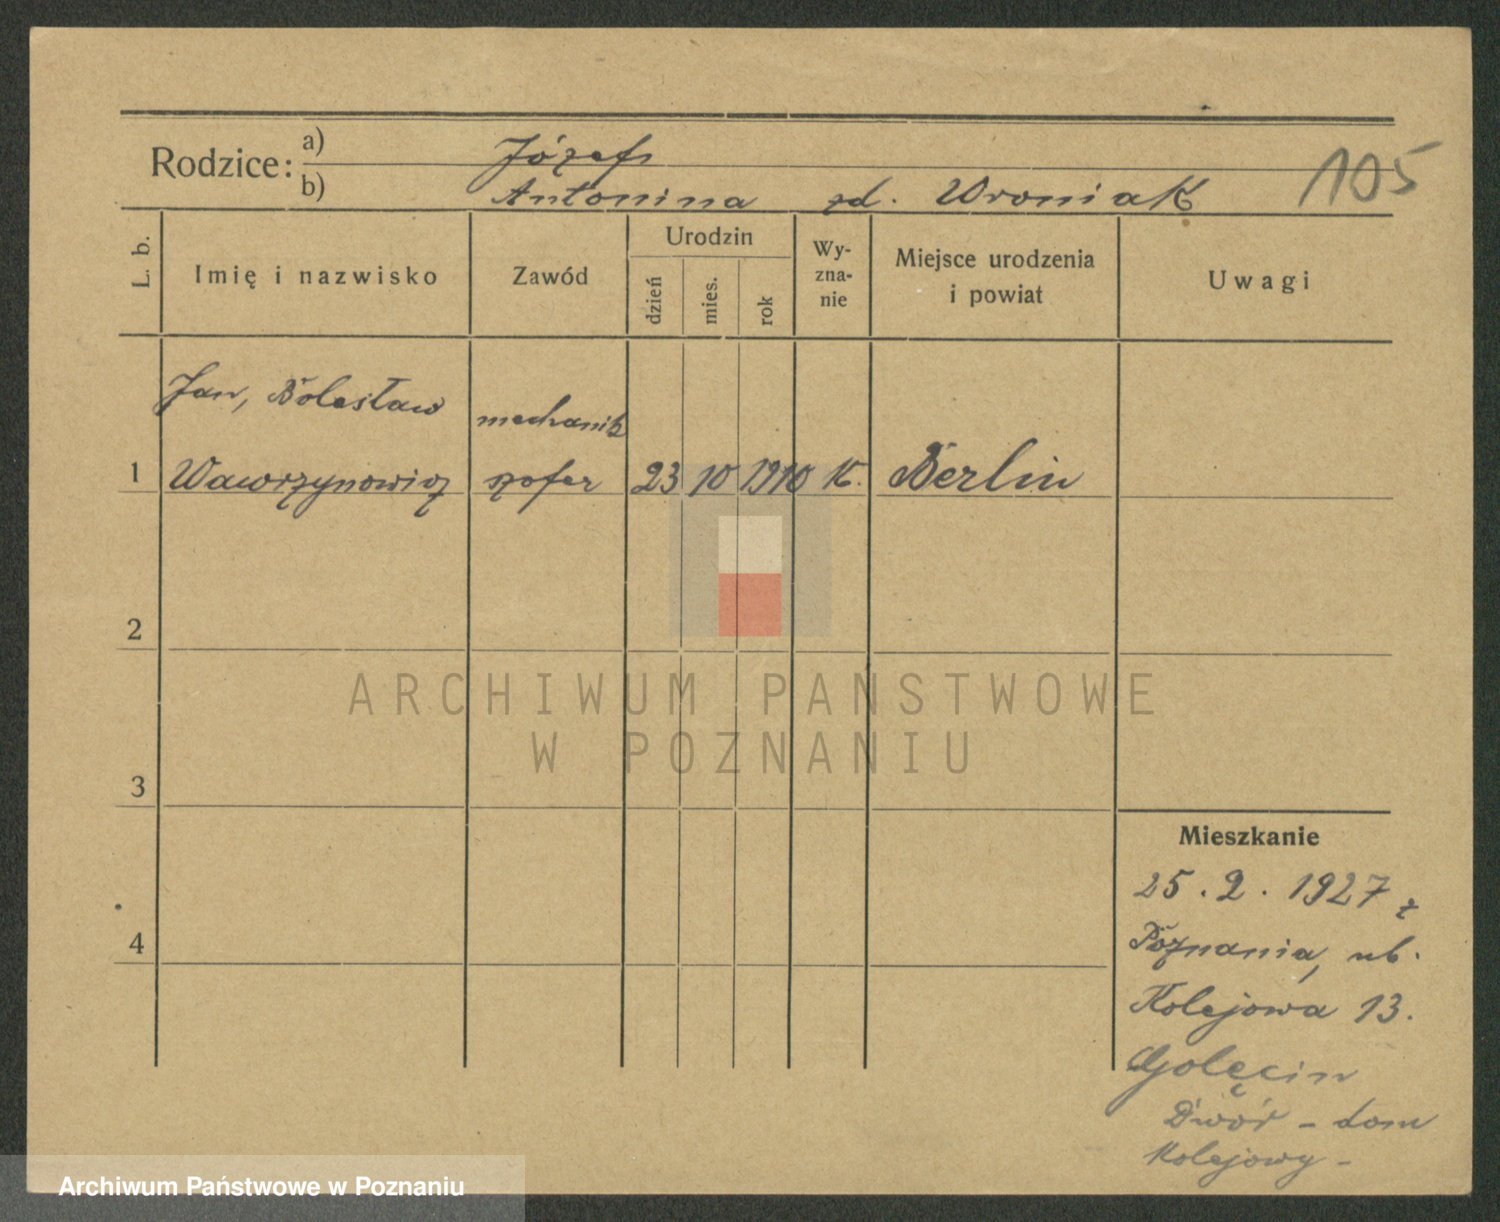 Rodzice: a) Józef
b) Antonina zd. Wroniak
105
L. b.
Imię i nazwisko
Zawód
Urodzin
dzień
mies.
rok
Wy-
zna-
nie
Miejsce urodzenia
i powiat
Uwagi
Jan, Bolesław mechanik
1 Wawrzynowicz szofer 23 10 1910 K. Berlin
2
ARCHIWUM PAŃSTWOWE
W POZNANIU
3
Mieszkanie
25. 2. 1927 z
Poznania, ul.
4
Kolejowa 13.
Golęcin
Dwór - dom
Kolejowy -
Archiwum Państwowe w Poznaniu